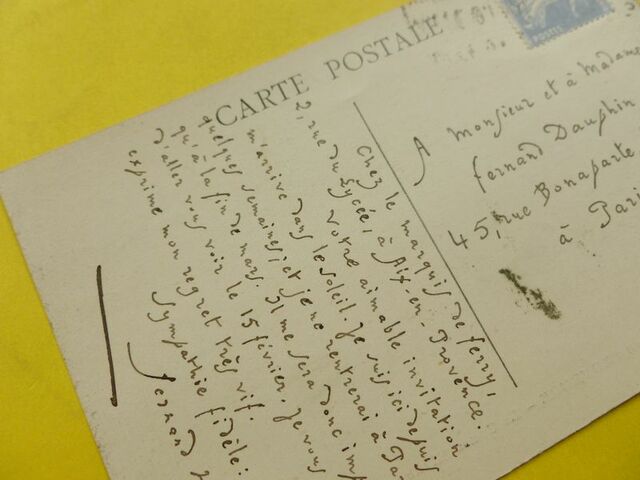 CARTE POSTALE
POSTES
A Monsieur et à Madame
Fernand Dauphin
45, rue Bonaparte
à Pari
Chez le marquis de Ferry,
2, rue du Lycée, à Aix-en-Provence.
votre aimable invitation
m'arrive dans le soleil. Je suis ici depuis
quelques semaines, et je ne rentrerai à Par
qu'à la fin de mars. Il me sera donc imp
d'aller vous voir le 15 février. Je vous
exprime mon regret très vif.
Sympathie fidèle:
Fernand